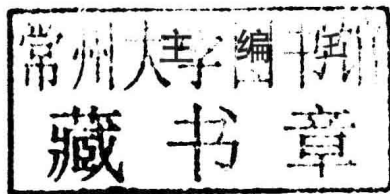 常州大学图书馆
主 编
藏书章